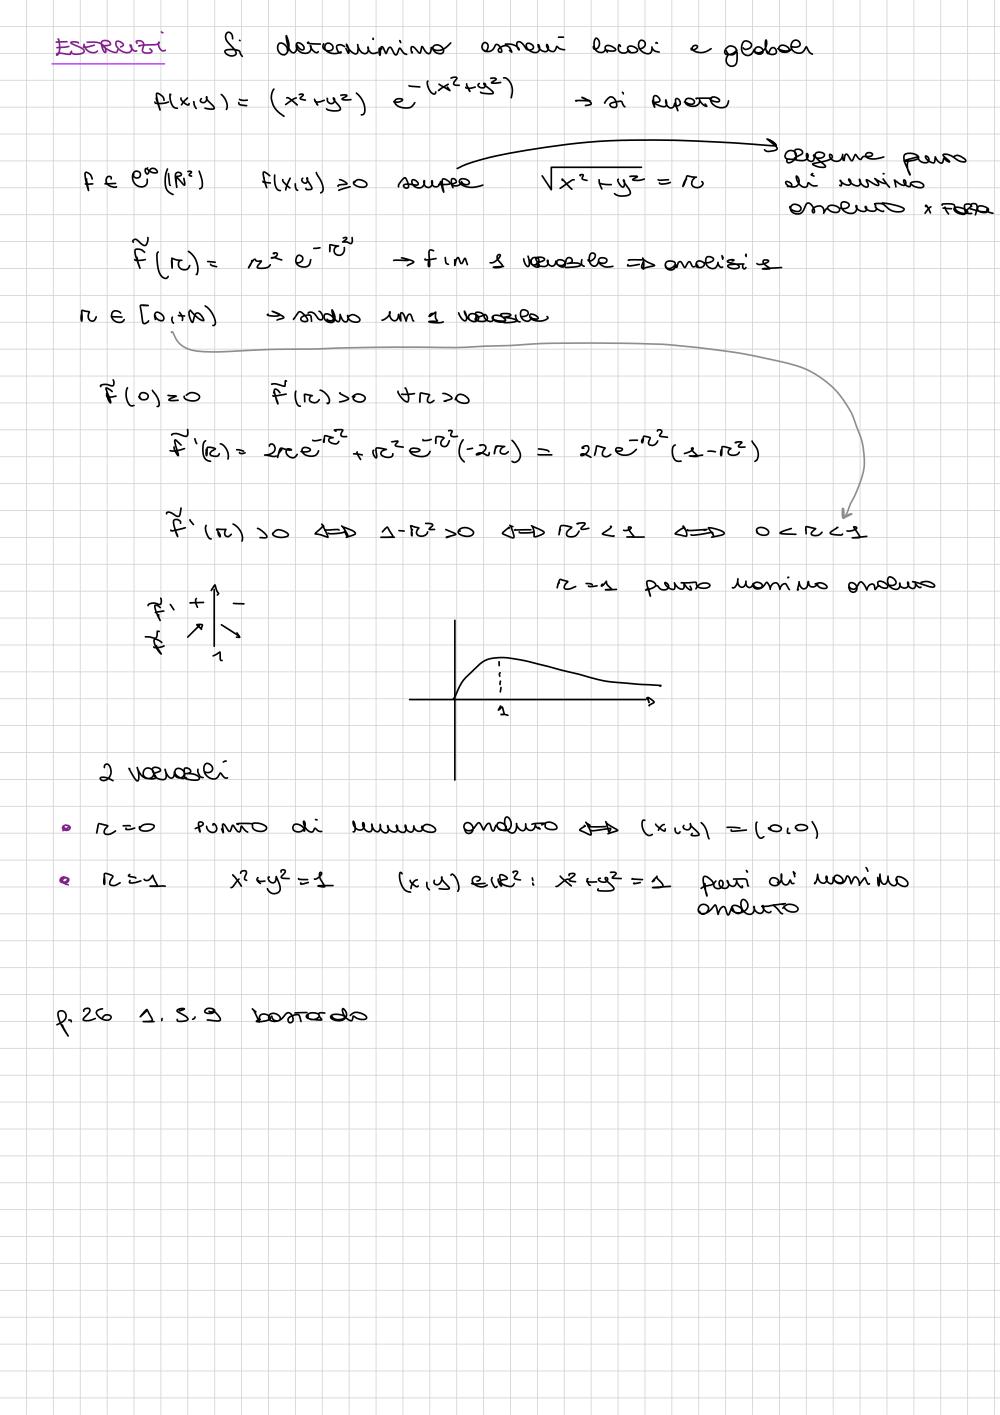 ESERCIZI Si determinino estremi locali e globali
f(x,y) = (x²+y²) e^-(x²+y²) → si ripete
f ∈ C^∞(ℝ²) f(x,y) ≥0 sempre √x²+y² = r
origine punto
di minimo
assoluto x forza
f̃(r) = r² e^-r² → f in 1 variabile ⇒ analisi 1
r ∈ [0,+∞) → studio in 1 variabile
f̃(0)=0 f̃(r)>0 ∀r>0
f̃'(r) = 2re^-r² + r²e^-r²(-2r) = 2re^-r²(1-r²)
f̃'(r) >0 ⇔ 1-r²>0 ⇔ r²<1 ⇔ 0<r<1
r=1 punto massimo assoluto
f̃' + -
f̃ ↗ ↘
1
1
2 variabili
• r=0 punto di minimo assoluto ⇔ (x,y) = (0,0)
• r=1 x²+y²=1 (x,y) ∈ℝ²: x²+y²=1 punti di massimo
assoluto
p. 26 1.5.9 bastardo